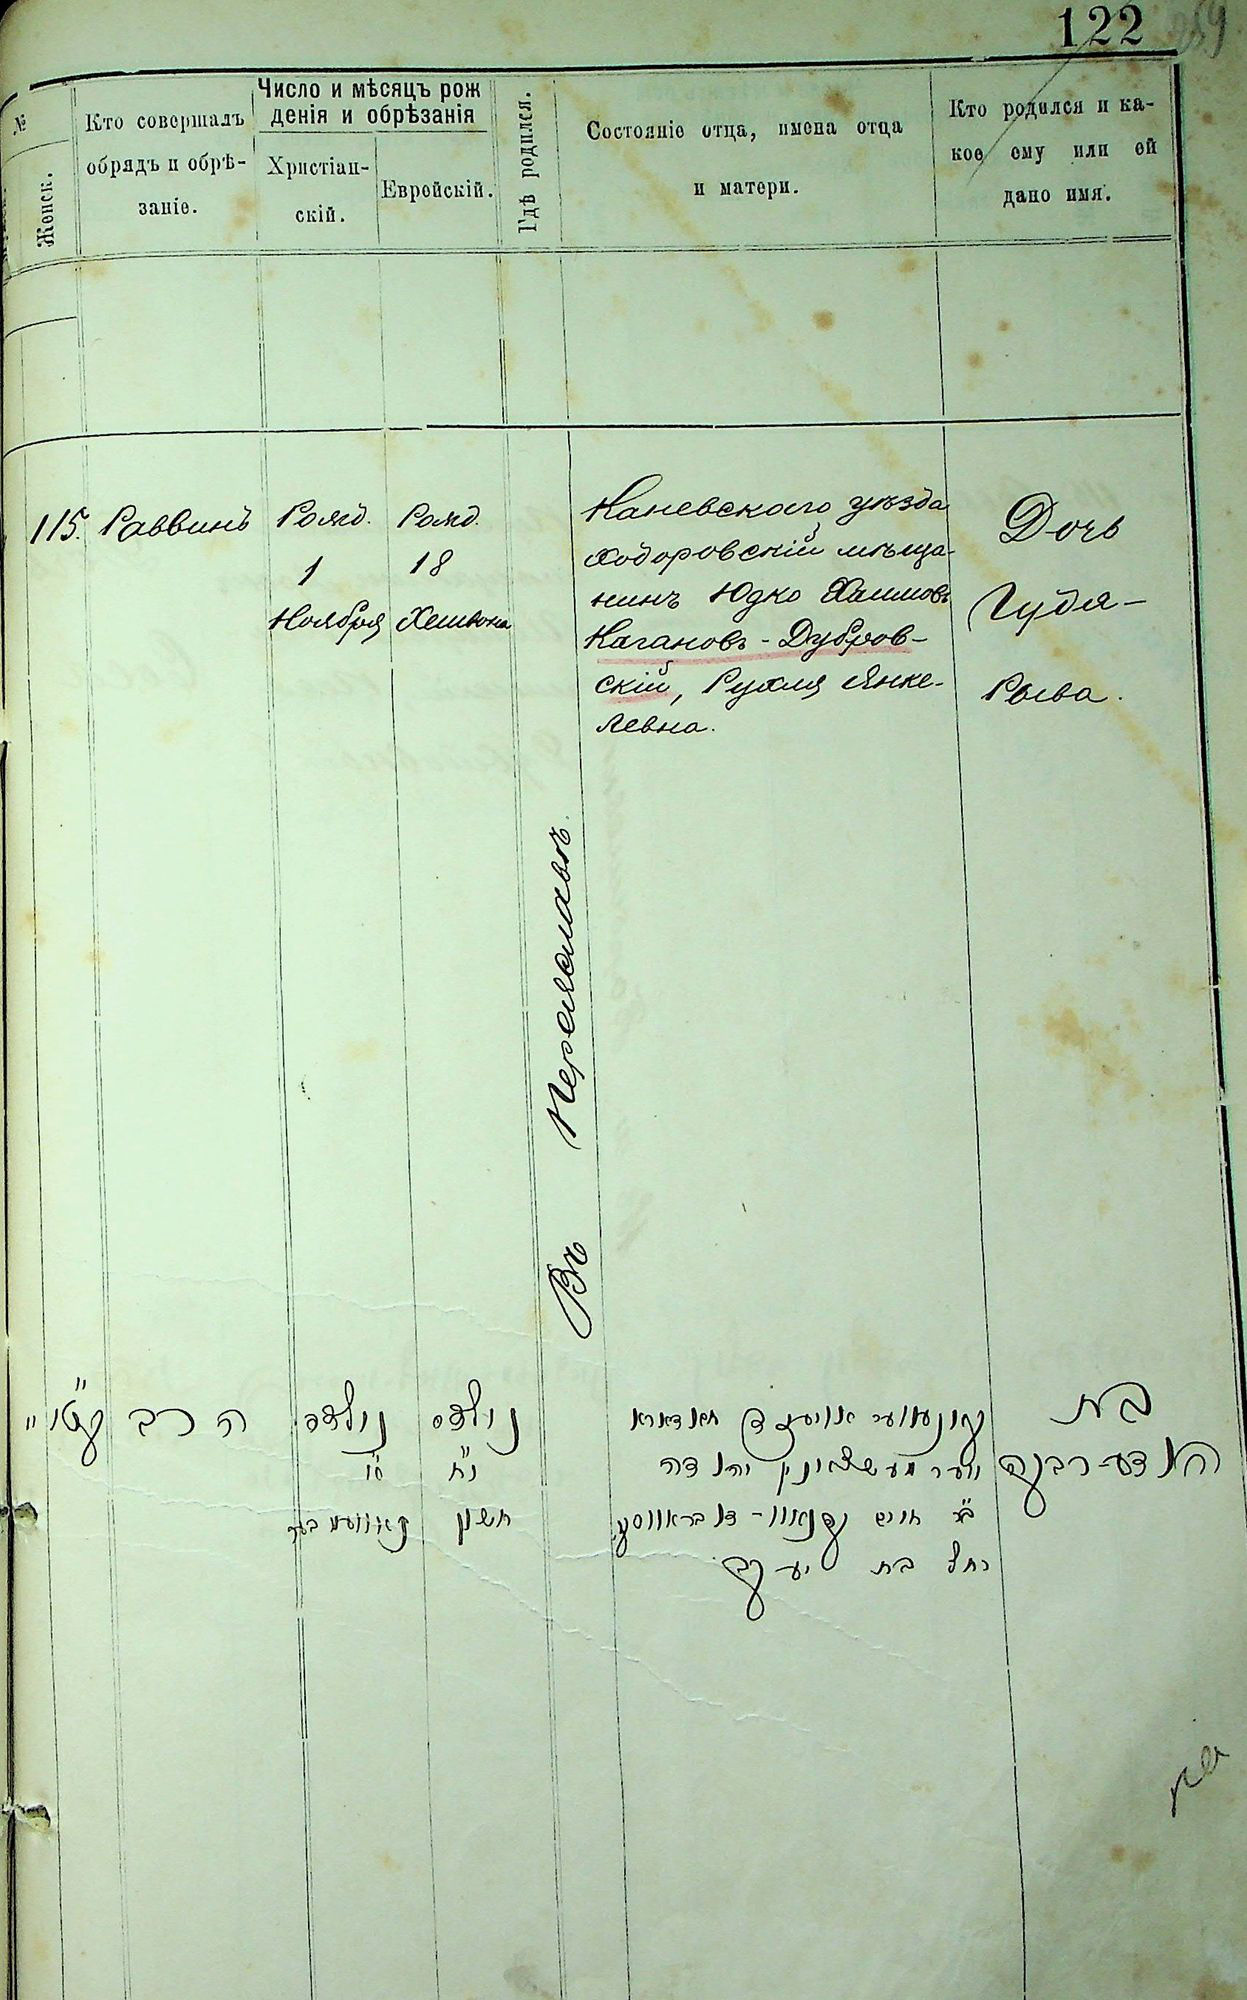 122
№
Женск.
Кто совершалъ
обрядъ и обрѣ-
заніе.
Число и мѣсяцъ рож
денія и обрѣзанія
Христіан-
скій.
Еврейскій.
Гдѣ родился.
Состояніе отца, имена отца
и матери.
Кто родился и ка-
кое ему или ей
дано имя.
115.
Раввинъ
Рожд.
1
Ноября
Рожд.
18
Хешвона
Въ Переяславѣ.
Каневскаго уѣзда
Ходоровскій мѣща-
нинъ Юдко Хаимовъ
Кагановъ-Дубров-
скій, Рухля Янке-
левна.
Дочь
Гудя-
Рыва.
הרב
נולדה
נולדה
י"ח
חשון
יהודה
חיים
רחל בת יעקב
בת